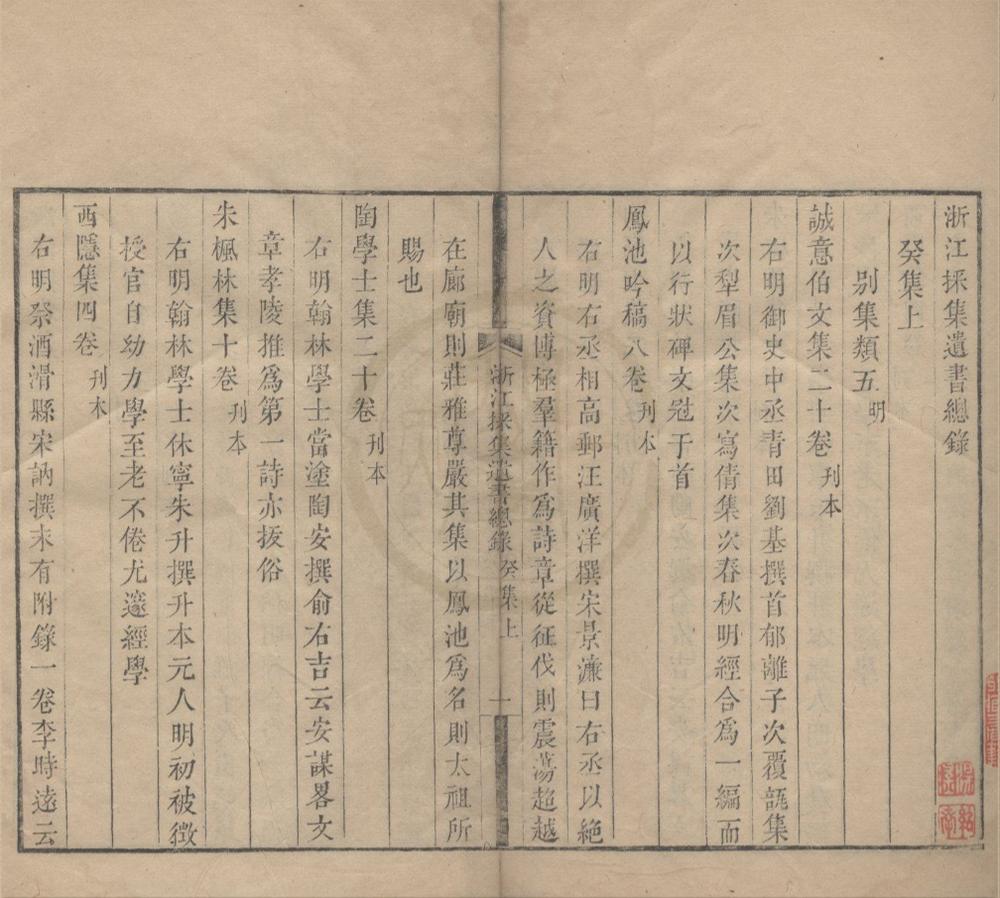 浙江採集遺書總錄
癸集上
別集類五 明
誠意伯文集二十卷 刊本
右明御史中丞青田劉基撰首郁離子次覆瓿集
次犁眉公集次寫情集次春秋明經合爲一編而
以行狀碑文冠于首
鳳池吟稿八卷 刊本
右明右丞相高郵汪廣洋撰宋景濂曰右丞以絶
人之資博極羣籍作爲詩章從征伐則震蕩超越
浙江採集遺書總錄 癸集上 一
在廊廟則莊雅尊嚴其集以鳳池爲名則太祖所
賜也
陶學士集二十卷 刊本
右明翰林學士當塗陶安撰俞右吉云安謀畧文
章孝陵推爲第一詩亦拔俗
朱楓林集十卷 刊本
右明翰林學士休寧朱升撰升本元人明初被徴
授官自幼力學至老不倦尤邃經學
西隱集四卷 刊本
右明祭酒滑縣宋訥撰末有附錄一卷李時遠云